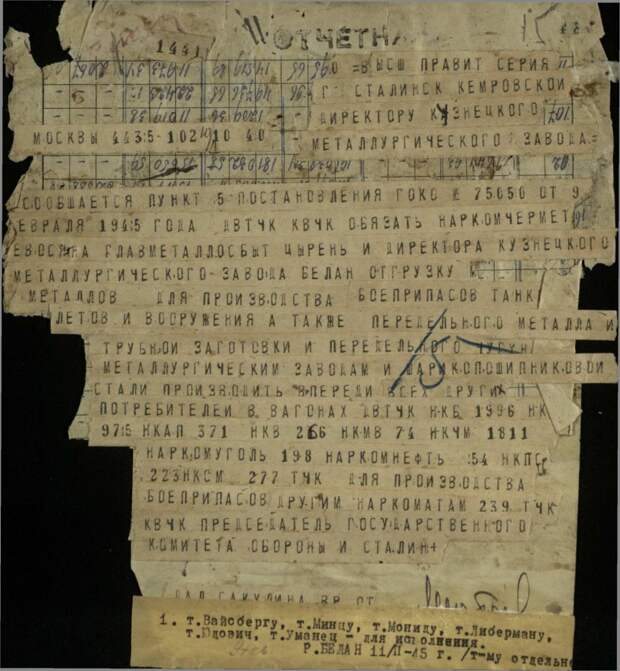 ОТЧЕТНА
1441
О =ВЫСШ ПРАВИТ СЕРИЯ
Г СТАЛИНСК КЕМРОВСКОЙ
ДИРЕКТОРУ КУЗНЕЦКОГО
МОСКВЫ 4435 102 10 40 - МЕТАЛЛУРГИЧЕСКОГО ЗАВОДА=
СООБЩАЕТСЯ ПУНКТ 5 ПОСТАНОВЛЕНИЯ ГОКО 75050 ОТ 9
ЕВРАЛЯ 1945 ГОДА ДВТЧК КВЧК ОБЯЗАТЬ НАРКОМЧЕРМЕТ
ЕВОСЯНА ГЛАВМЕТАЛЛОСБЫТ ЦЫРЕНЬ И ДИРЕКТОРА КУЗНЕЦКОГО
МЕТАЛЛУРГИЧЕСКОГО-ЗАВОДА БЕЛАН ОТГРУЗКУ
МЕТАЛЛОВ ДЛЯ ПРОИЗВОДСТВА БОЕПРИПАСОВ ТАНК
ЛЕТОВ И ВООРУЖЕНИЯ А ТАКЖЕ ПЕРЕДЕЛЬНОГО МЕТАЛЛА И
ТРУБНОЙ ЗАГОТОВКИ И ПЕРЕДЕЛЬНОГО ЧУГУН
МЕТАЛЛУРГИЧЕСКИМ ЗАВОДАМ И ШАРИКОПОШИПНИКОВОЙ
СТАЛИ ПРОИЗВОДИТЬ ВПЕРЕДИ ВСЕХ ДРУГИХ П
ПОТРЕБИТЕЛЕЙ В ВАГОНАХ ДВТЧК НКБ 1996 НК
975 НКАП 371 НКВ 266 НКМВ 74 НКЧМ 1811
НАРКОМУГОЛЬ 198 НАРКОМНЕФТЬ 54 НКПС
223НКСМ 277 ТЧК ДЛЯ ПРОИЗВОДСТВА
БОЕПРИПАСОВ ДРУГИМ НАРКОМАТАМ 239 ТЧК
КВЧК ПРЕДСЕДАТЕЛЬ ГОСУДАРСТВЕННОГО
КОМИТЕТА ОБОРОНЫ И СТАЛИН+
1. т.Вайсбергу, т.Минцу, т.Мониду, т.Либерману,
т.Юдович, т.Уманец - для исполнения.
Р.БЕЛАН 11/II-45 г. /т-му отдельно